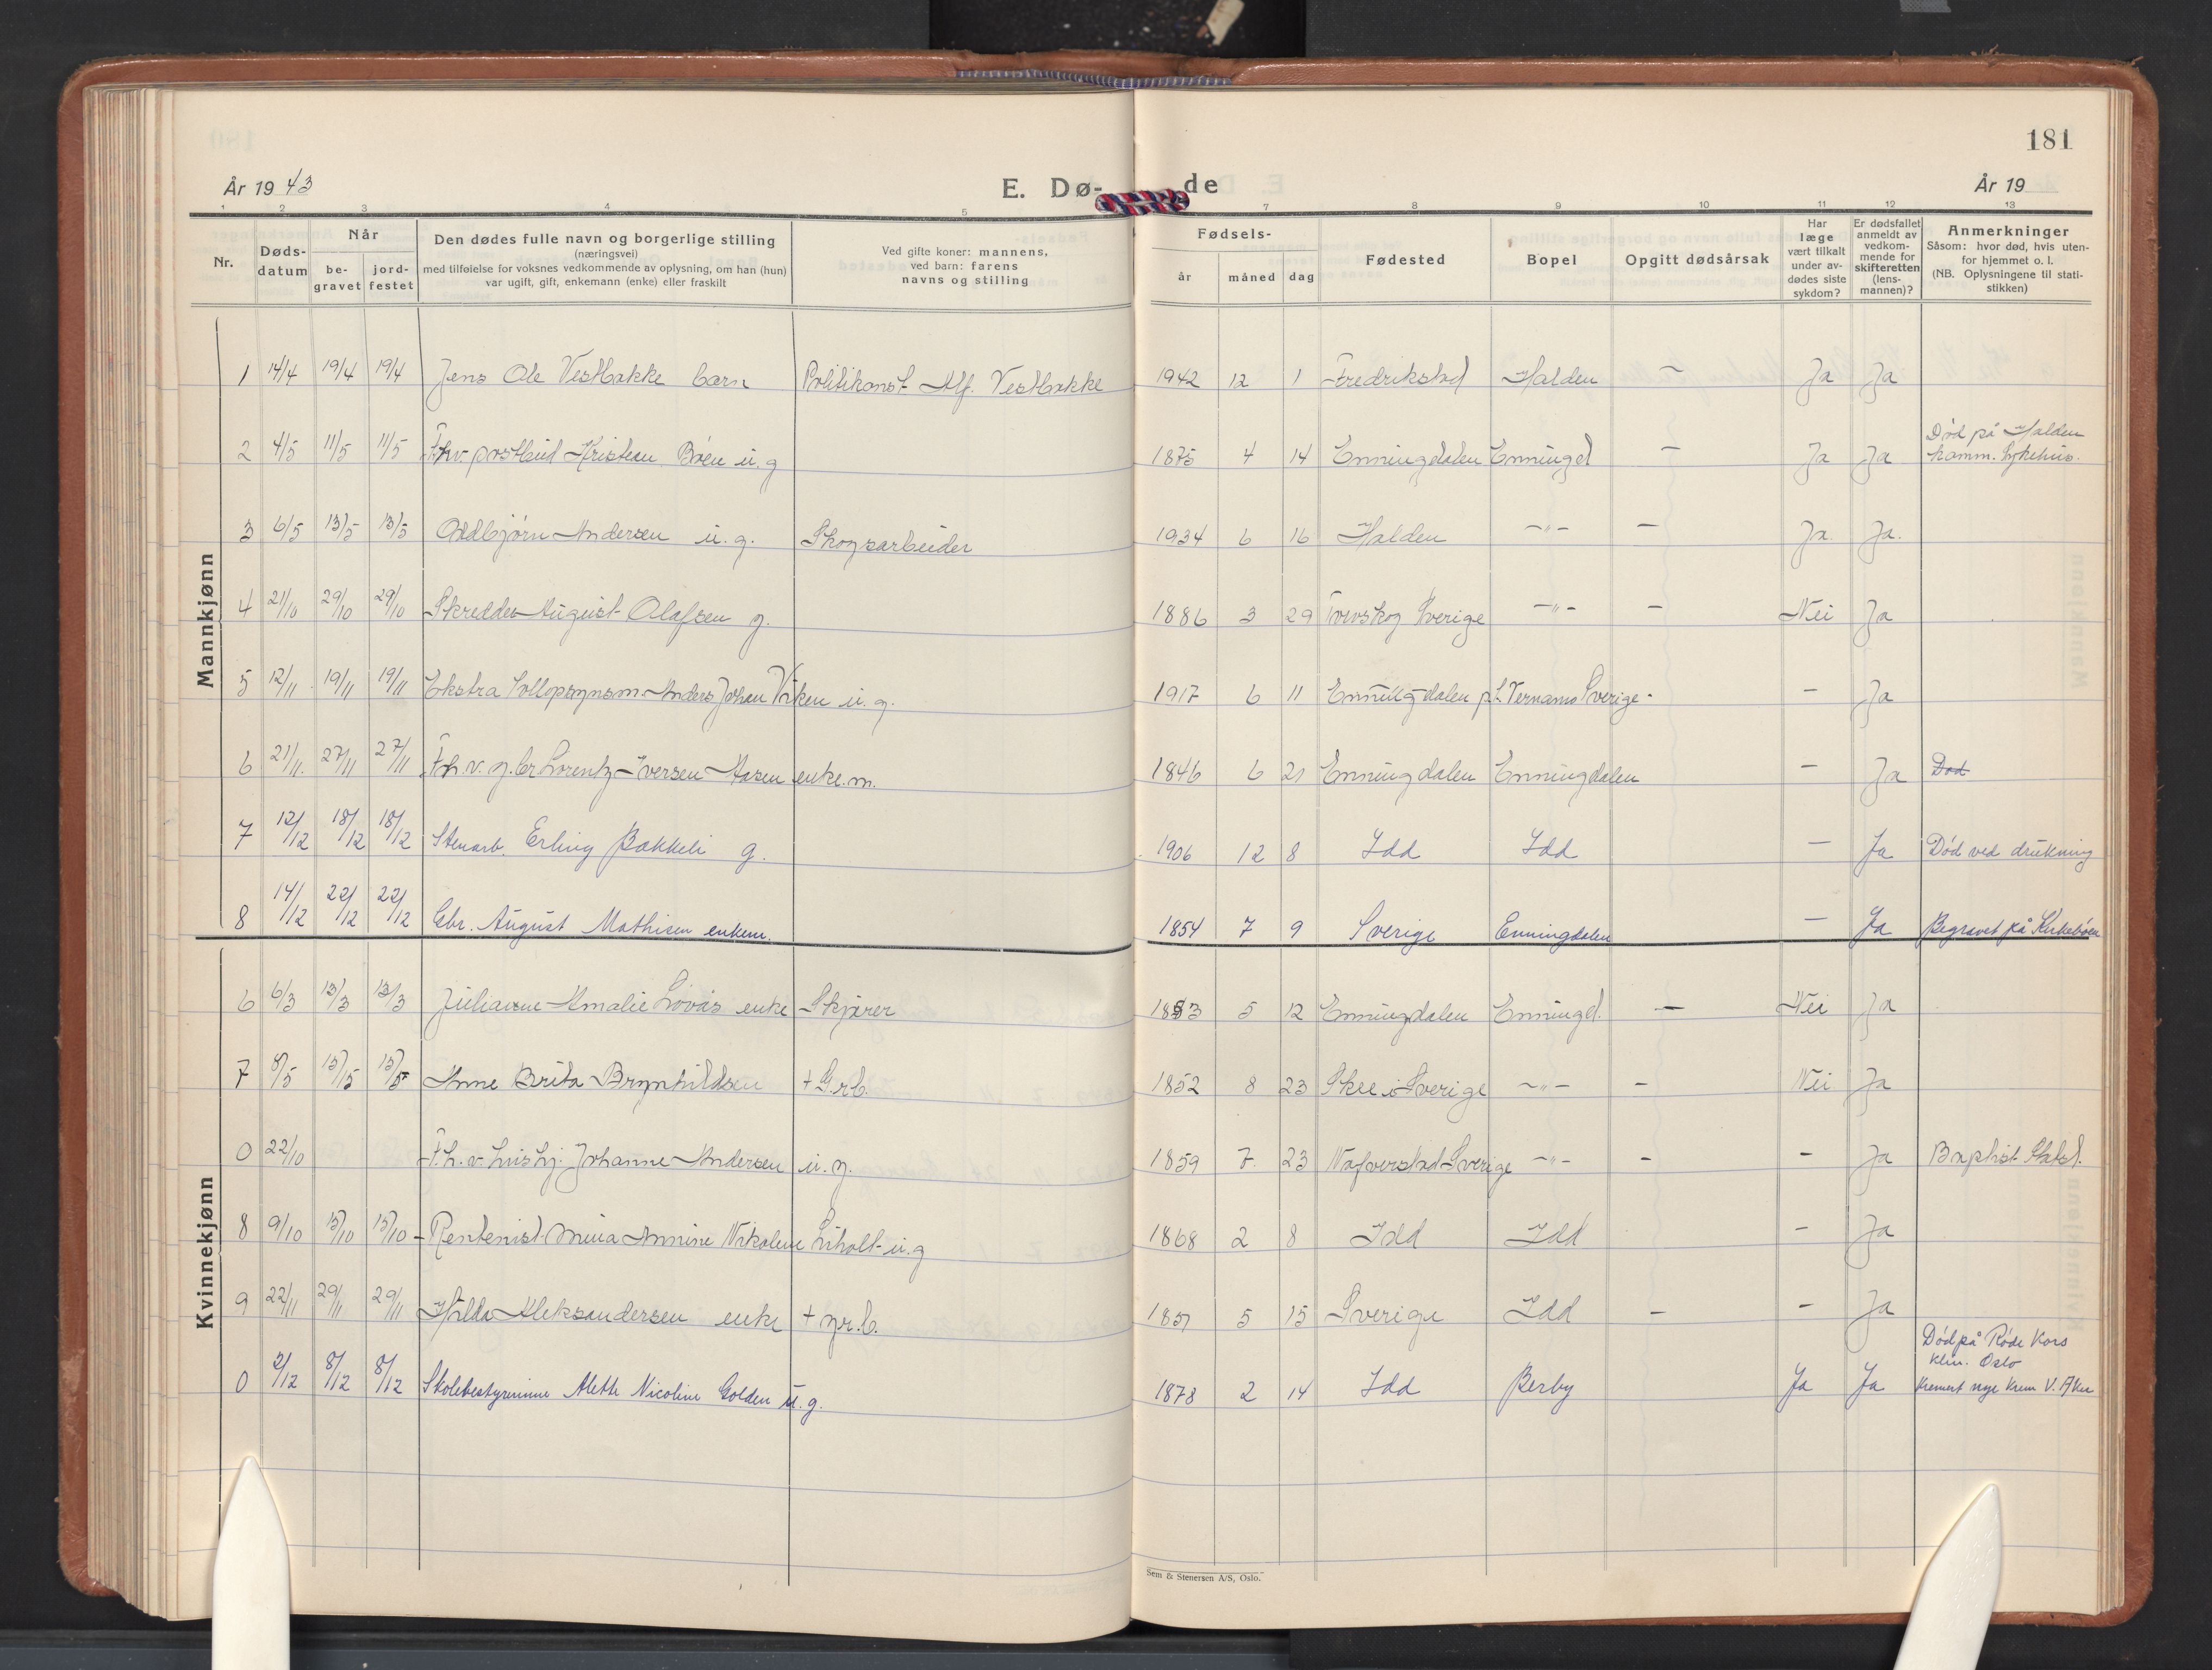 181
År 19 43 E. Dø- de År 19
1 2 3 4 5 7 8 9 10 11 12 13
Nr.
Døds-
datum
Når
be-
gravet
jord-
festet
Den dødes fulle navn og borgerlige stilling
(næringsvei)
med tilføielse for voksnes vedkommende av oplysning, om han (hun)
var ugift, gift, enkemann (enke) eller fraskilt
Ved gifte koner: mannens,
ved barn: farens
navns og stilling
Fødsels-
år måned dag
Fødested
Bopel
Opgitt dødsårsak
Har
læge
vært tilkalt
under av-
dødes siste
sykdom?
Er dødsfallet
anmeldt av
vedkom-
mende for
skifteretten
(lens-
mannen)?
Anmerkninger
Såsom: hvor død, hvis uten-
for hjemmet o. l.
(NB. Oplysningene til stati-
stikken)
Mannkjønn
1 14/4 19/4 19/4 Jens Ole Vestbakke barn Politikonst. Alf. Vestbakke 1942 12 1 Fredrikstad Halden – Ja Ja
Død på Halden
2 4/5 11/5 11/5 Fhv. postbud Kristian Bøen u. g 1875 4 14 Enningdalen Enningd – Ja Ja komm. Sykehus.
3 6/5 13/5 13/5 Oddbjørn Andersen u. g. Skogsarbeider 1934 6 16 Halden –"– – Ja Ja.
4 21/10 29/10 29/10 Skredder August Olafsen g. 1886 3 29 Sverige –"– – Nei Ja
5 12/11 19/11 19/11 Ekstra tollopsynsm. Anders Johan Viken u. g. 1917 6 11 Enningdalen p.t. Sverige – – Ja
6 21/11. 27/11 27/11 F.h.v. g.br Lorentz Iversen Aasen enke.m. 1846 6 21 Enningdalen Enningdalen – Ja Død
7 12/12 18/12 18/12 Stenarb. Erling Bakkeli g. 1906 12 8 Idd Idd – Ja Død ved drukning
8 14/12 22/12 22/12 Gbr. August Mathisen enkem. 1854 7 9 Sverige Enningdalen – Ja Begravet på Kirkebøen
Kvinnekjønn
6 6/3 13/3 13/3 Julianne Amalie Løvås enke Skjærer 1853 5 12 Enningdalen Enningd. – Nei Ja
7 8/5 15/5 15/5 Anne Brita Brynhildsen + G.rb. 1852 8 23 Skee i Sverige –"– – Nei Ja
0 22/10 F.h.v. hushj. Johanne Andersen u. g. 1859 7 23 Nafverstad Sverige –"– – – Ja Baptist
8 9/10 15/10 15/10 Rentenist Annine Nikoline Liholt u. g 1868 2 8 Idd Idd – Ja
9 22/11 29/11 29/11 Hilda Aleksandersen enke + gr.b. 1857 5 15 Sverige Idd – – Ja
Død på Røde Kors
klin. Oslo
0 2/12 8/12 8/12 Skolebestyrerinne Alette Nicoline Golden u. g. 1878 2 14 Idd Berby Ja Ja Kremert nye Krem V. Aker
Sem & Stenersen A/S, Oslo.